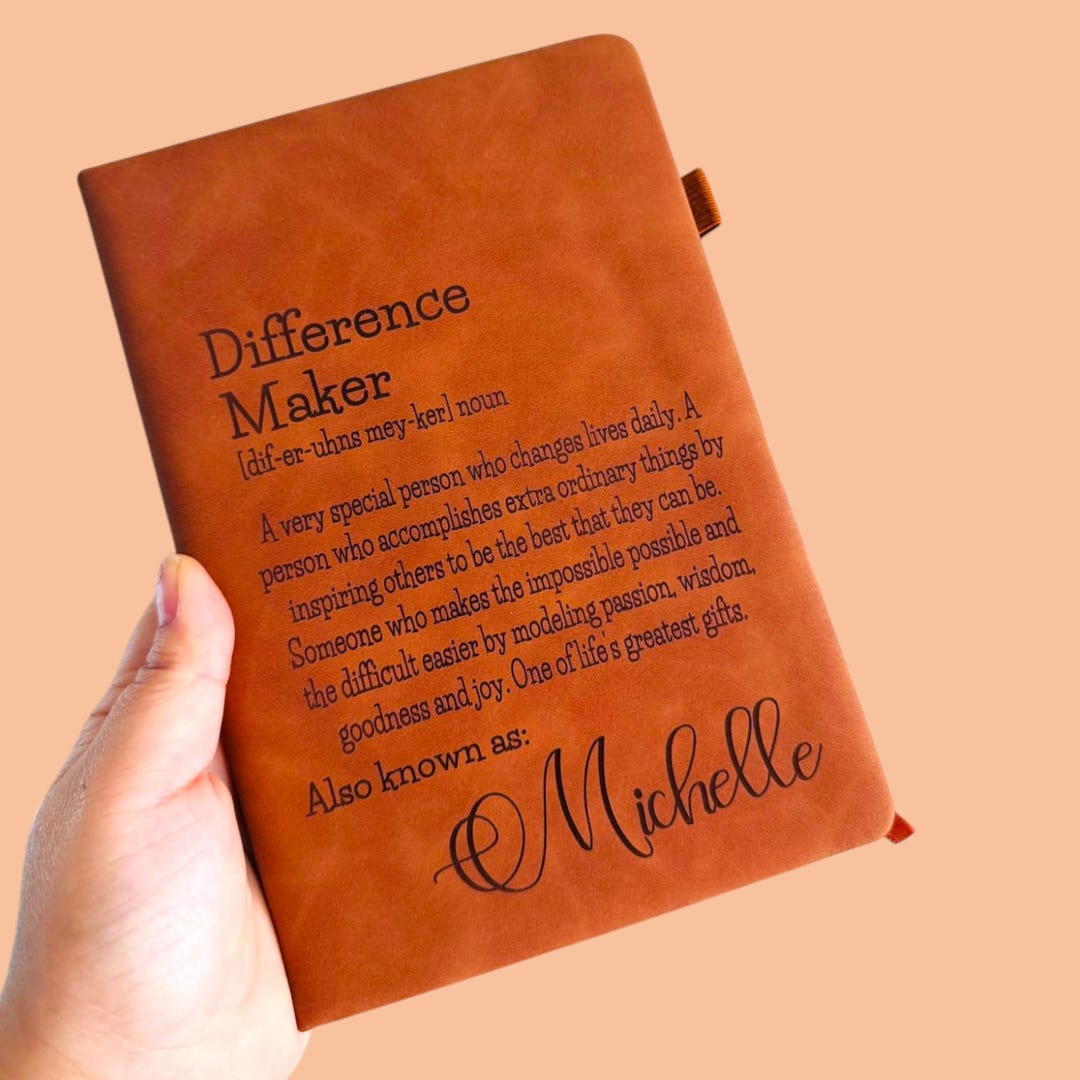 Difference
Maker
[dif-er-uhns mey-ker] noun
A very special person who changes lives daily. A
person who accomplishes extra ordinary things by
inspiring others to be the best that they can be.
Someone who makes the impossible possible and
the difficult easier by modeling passion, wisdom,
goodness and joy. One of life's greatest gifts.
Also known as:
Michelle